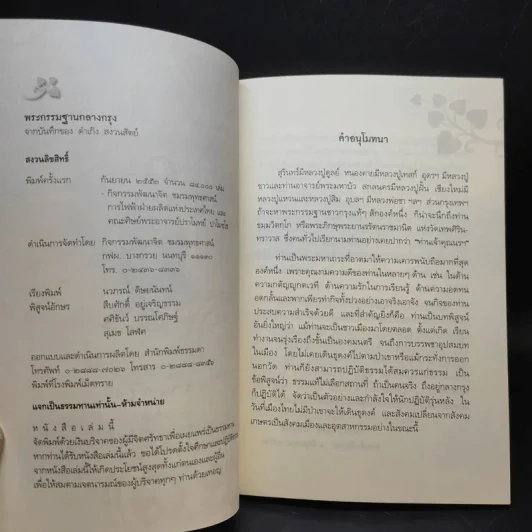 พระกรรมฐานกลางกรุง
จากบันทึกของ ดำเกิง สงวนสัตย์
สงวนลิขสิทธิ์
พิมพ์ครั้งแรก กันยายน ๒๕๕๒ จำนวน ๘๔,๐๐๐ เล่ม
- กิจกรรมพัฒนาจิต ชมรมพุทธศาสน์
การไฟฟ้าฝ่ายผลิตแห่งประเทศไทย และ
คณะศิษย์พระอาจารย์ปราโมทย์ ปาโมชฺโช
ดำเนินการจัดทำโดย กิจกรรมพัฒนาจิต ชมรมพุทธศาสน์
กฟผ. บางกรวย นนทบุรี ๑๑๑๓๐
โทร.
เรียงพิมพ์ นวภารณ์
พิสูจน์อักษร สืบศักดิ์ อยู่เจริญธรรม
คศิธันว์
สุเมธ โสฬศ
ออกแบบและดำเนินการผลิตโดย สำนักพิมพ์ธรรมดา
โทรศัพท์ ๐-๒๘๘๘-๗๐๒๖ โทรสาร
พิมพ์ที่โรงพิมพ์เม็ดทราย
แจกเป็นธรรมทานเท่านั้น-ห้ามจำหน่าย
หนังสือเล่มนี้
จัดพิมพ์ด้วยเงินบริจาคของผู้มีจิตศรัทธาเพื่อเผยแพร่เป็นธรรมทาน
หากท่านได้รับหนังสือเล่มนี้แล้ว ขอได้โปรดตั้งใจศึกษาและปฏิบัติธรรม
จากหนังสือเล่มนี้ให้เกิดประโยชน์สูงสุดทั้งแก่ตนเองและผู้อื่น
เพื่อให้สมตามเจตนารมณ์ของผู้บริจาคทุกๆ ท่านด้วยเทอญ
คำอนุโมทนา
สุรินทร์มีหลวงปู่ดูลย์ หนองคายมีหลวงปู่เทสก์ อุดรฯ มีหลวงปู่
ขาวและท่านอาจารย์พระมหาบัว สกลนครมีหลวงปู่ฝั้น เชียงใหม่มี
หลวงปู่แหวนและหลวงปู่สิม อุบลฯ มีหลวงพ่อชา ฯลฯ ส่วนกรุงเทพฯ
ถ้าจะหาพระกรรมฐานชาวกรุงแท้ๆ สักองค์หนึ่ง ก็น่าจะนึกถึงท่าน
ธมฺมวิตกฺโก หรือพระภิกษุพระยานรรัตนราชมานิต แห่งวัดเทพศิริน-
ทราวาส ซึ่งคนทั่วไปเรียกนามท่านอย่างเคยปากว่า “ท่านเจ้าคุณนรฯ”
ท่านเป็นพระมหาเถระที่อาตมาให้ความเคารพนับถือมากที่สุด
องค์หนึ่ง เพราะคุณงามความดีของท่านในหลายๆ ด้าน เช่น ในด้าน
ความกตัญญูกตเวที ด้านความรักในการเรียนรู้ ด้านความอดทน
อดกลั้นและพากเพียรทำกิจทั้งปวงอย่างเอาจริงเอาจัง จนกิจของท่าน
ประสบความสำเร็จด้วยดี และที่สำคัญยิ่งก็คือ ท่านเป็นบทพิสูจน์
อันยิ่งใหญ่ว่า แม้ท่านจะเป็นชาวเมืองมาโดยตลอด ตั้งแต่เกิด เรียน
ทำงานจนรุ่งเรืองถึงขั้นเป็นองคมนตรี จนถึงการบรรพชาอุปสมบท
ในเมือง โดยไม่เคยเดินธุดงค์ไปตามป่าเขาหรือแม้กระทั่งการออก
นอกวัด ท่านก็ยังสามารถปฏิบัติธรรมได้สมควรแก่ธรรม เป็น
ข้อพิสูจน์ว่า ธรรมแท้ไม่เลือกสถานที่ ถ้าเป็นคนจริง ถึงอยู่กลางกรุง
ก็ปฏิบัติได้ จัดว่าเป็นตัวอย่างและกำลังใจให้นักปฏิบัติรุ่นหลัง ใน
วันที่เมืองไทยไม่มีป่าเขาจะให้เดินธุดงค์ และสังคมเปลี่ยนจากสังคม
เกษตรเป็นสังคมเมืองและอุตสาหกรรมอย่างในขณะนี้